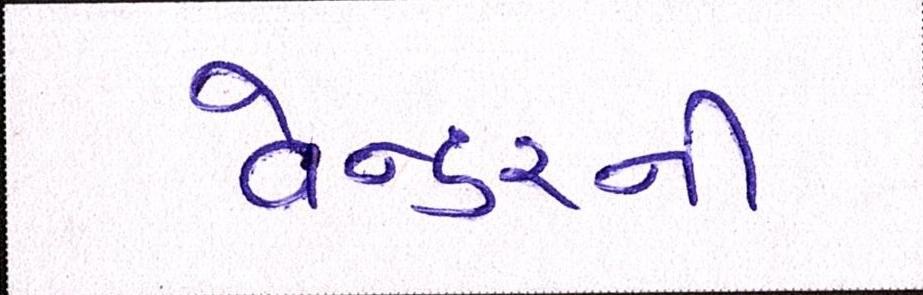 વેન્ડરની